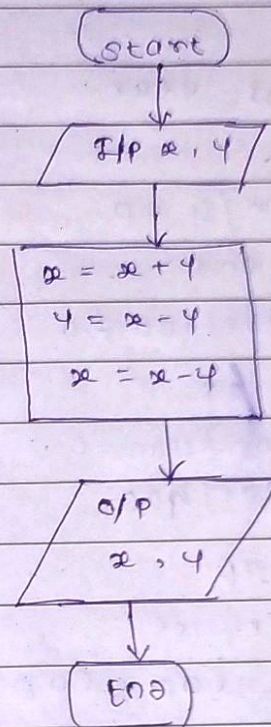 Start
I/P x, y
x = x + y
y = x - y
x = x - y
O/P
x, y
End